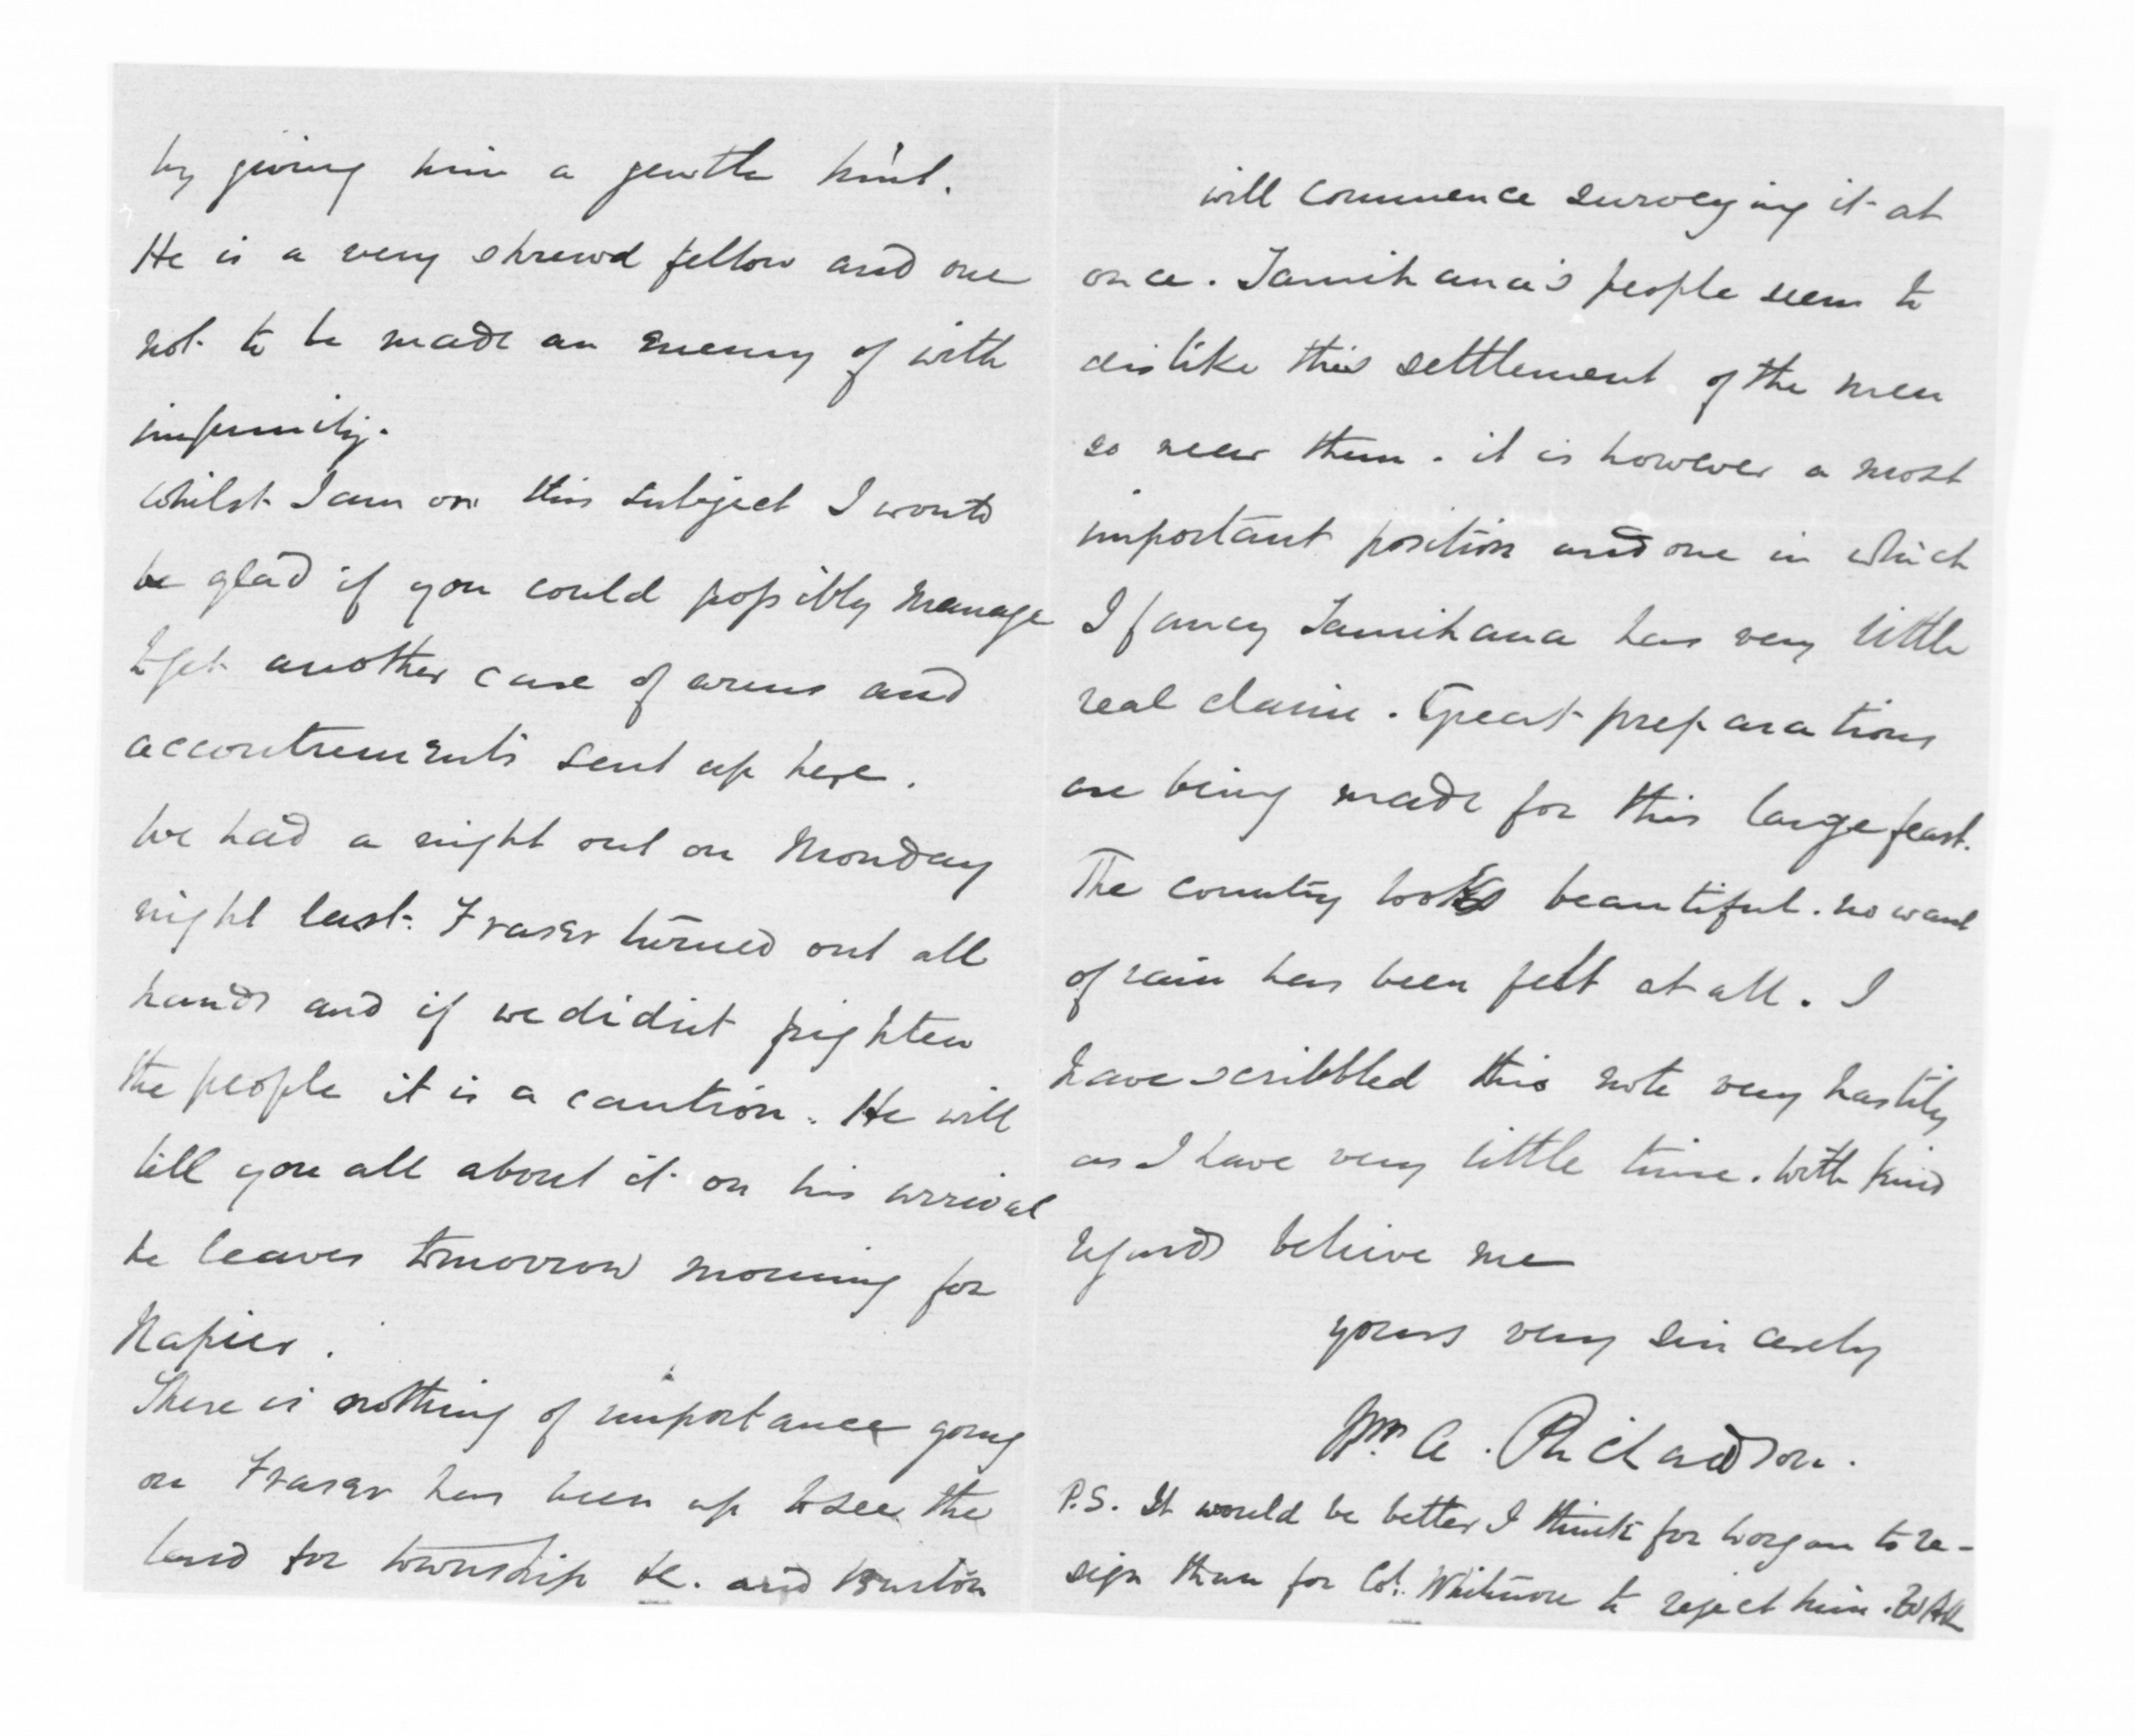 by giving him a gentle hint.
He is a very shrewd fellow and one
not to be made an enemy of with
impunity.
Whilst I am on this subject I would
be glad if you could possibly manage
to get another case of arms and
accoutrements sent up here.
We had a night out on Monday
night last. Fraser turned out all
hands and if we didn't frighten
the people it is a caution. He will
tell you all about it on his arrival
he leaves tomorrow morning for
Napier.
There is nothing of importance going
on Fraser has been up to see the
land for township &c. and Burton
will commence surveying it at
once. Tamihana's people seem to
dislike this settlement of the men
so near them. it is however a most
important position and one in which
I fancy Tamihana has very little
real claim. Great preparations
are being made for this large feast.
The country looks beautiful. no want
of rain has been felt at all. I
have scribbled this note very hastily
as I have very little time. With kind
regards believe me
yours very sincerely
Wm. A. Richardson.
P.S. It would be better I think for Worgan to re-
sign than for Col. Whitmore to reject him. WAR